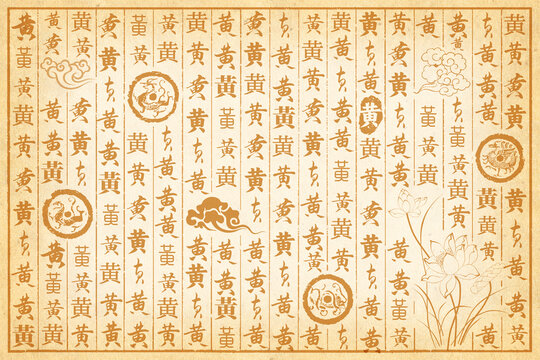 黄黄黄黄黄黄黄黄黄
黄黄黄黄黄黄黄黄黄
黄黄黄黄黄黄黄
黄黄黄黄黄
黄黄黄黄黄黄黄黄黄黄黄
黄黄黄黄黄黄黄黄黄黄黄
黄黄黄黄黄黄黄黄黄
黄黄黄黄黄黄黄黄黄
黄黄黄黄黄黄黄黄黄黄黄黄
黄黄黄黄黄黄黄黄黄黄黄黄
黄黄黄黄黄黄黄黄黄黄
黄黄黄黄黄黄黄黄黄黄
黄黄黄黄黄黄黄黄黄黄黄
黄黄黄黄黄黄黄黄黄黄
黄黄黄黄黄黄黄黄黄黄黄黄
黄黄黄黄黄黄黄黄黄黄
黄黄黄黄黄黄黄黄黄
黄黄黄黄黄黄黄黄黄黄黄